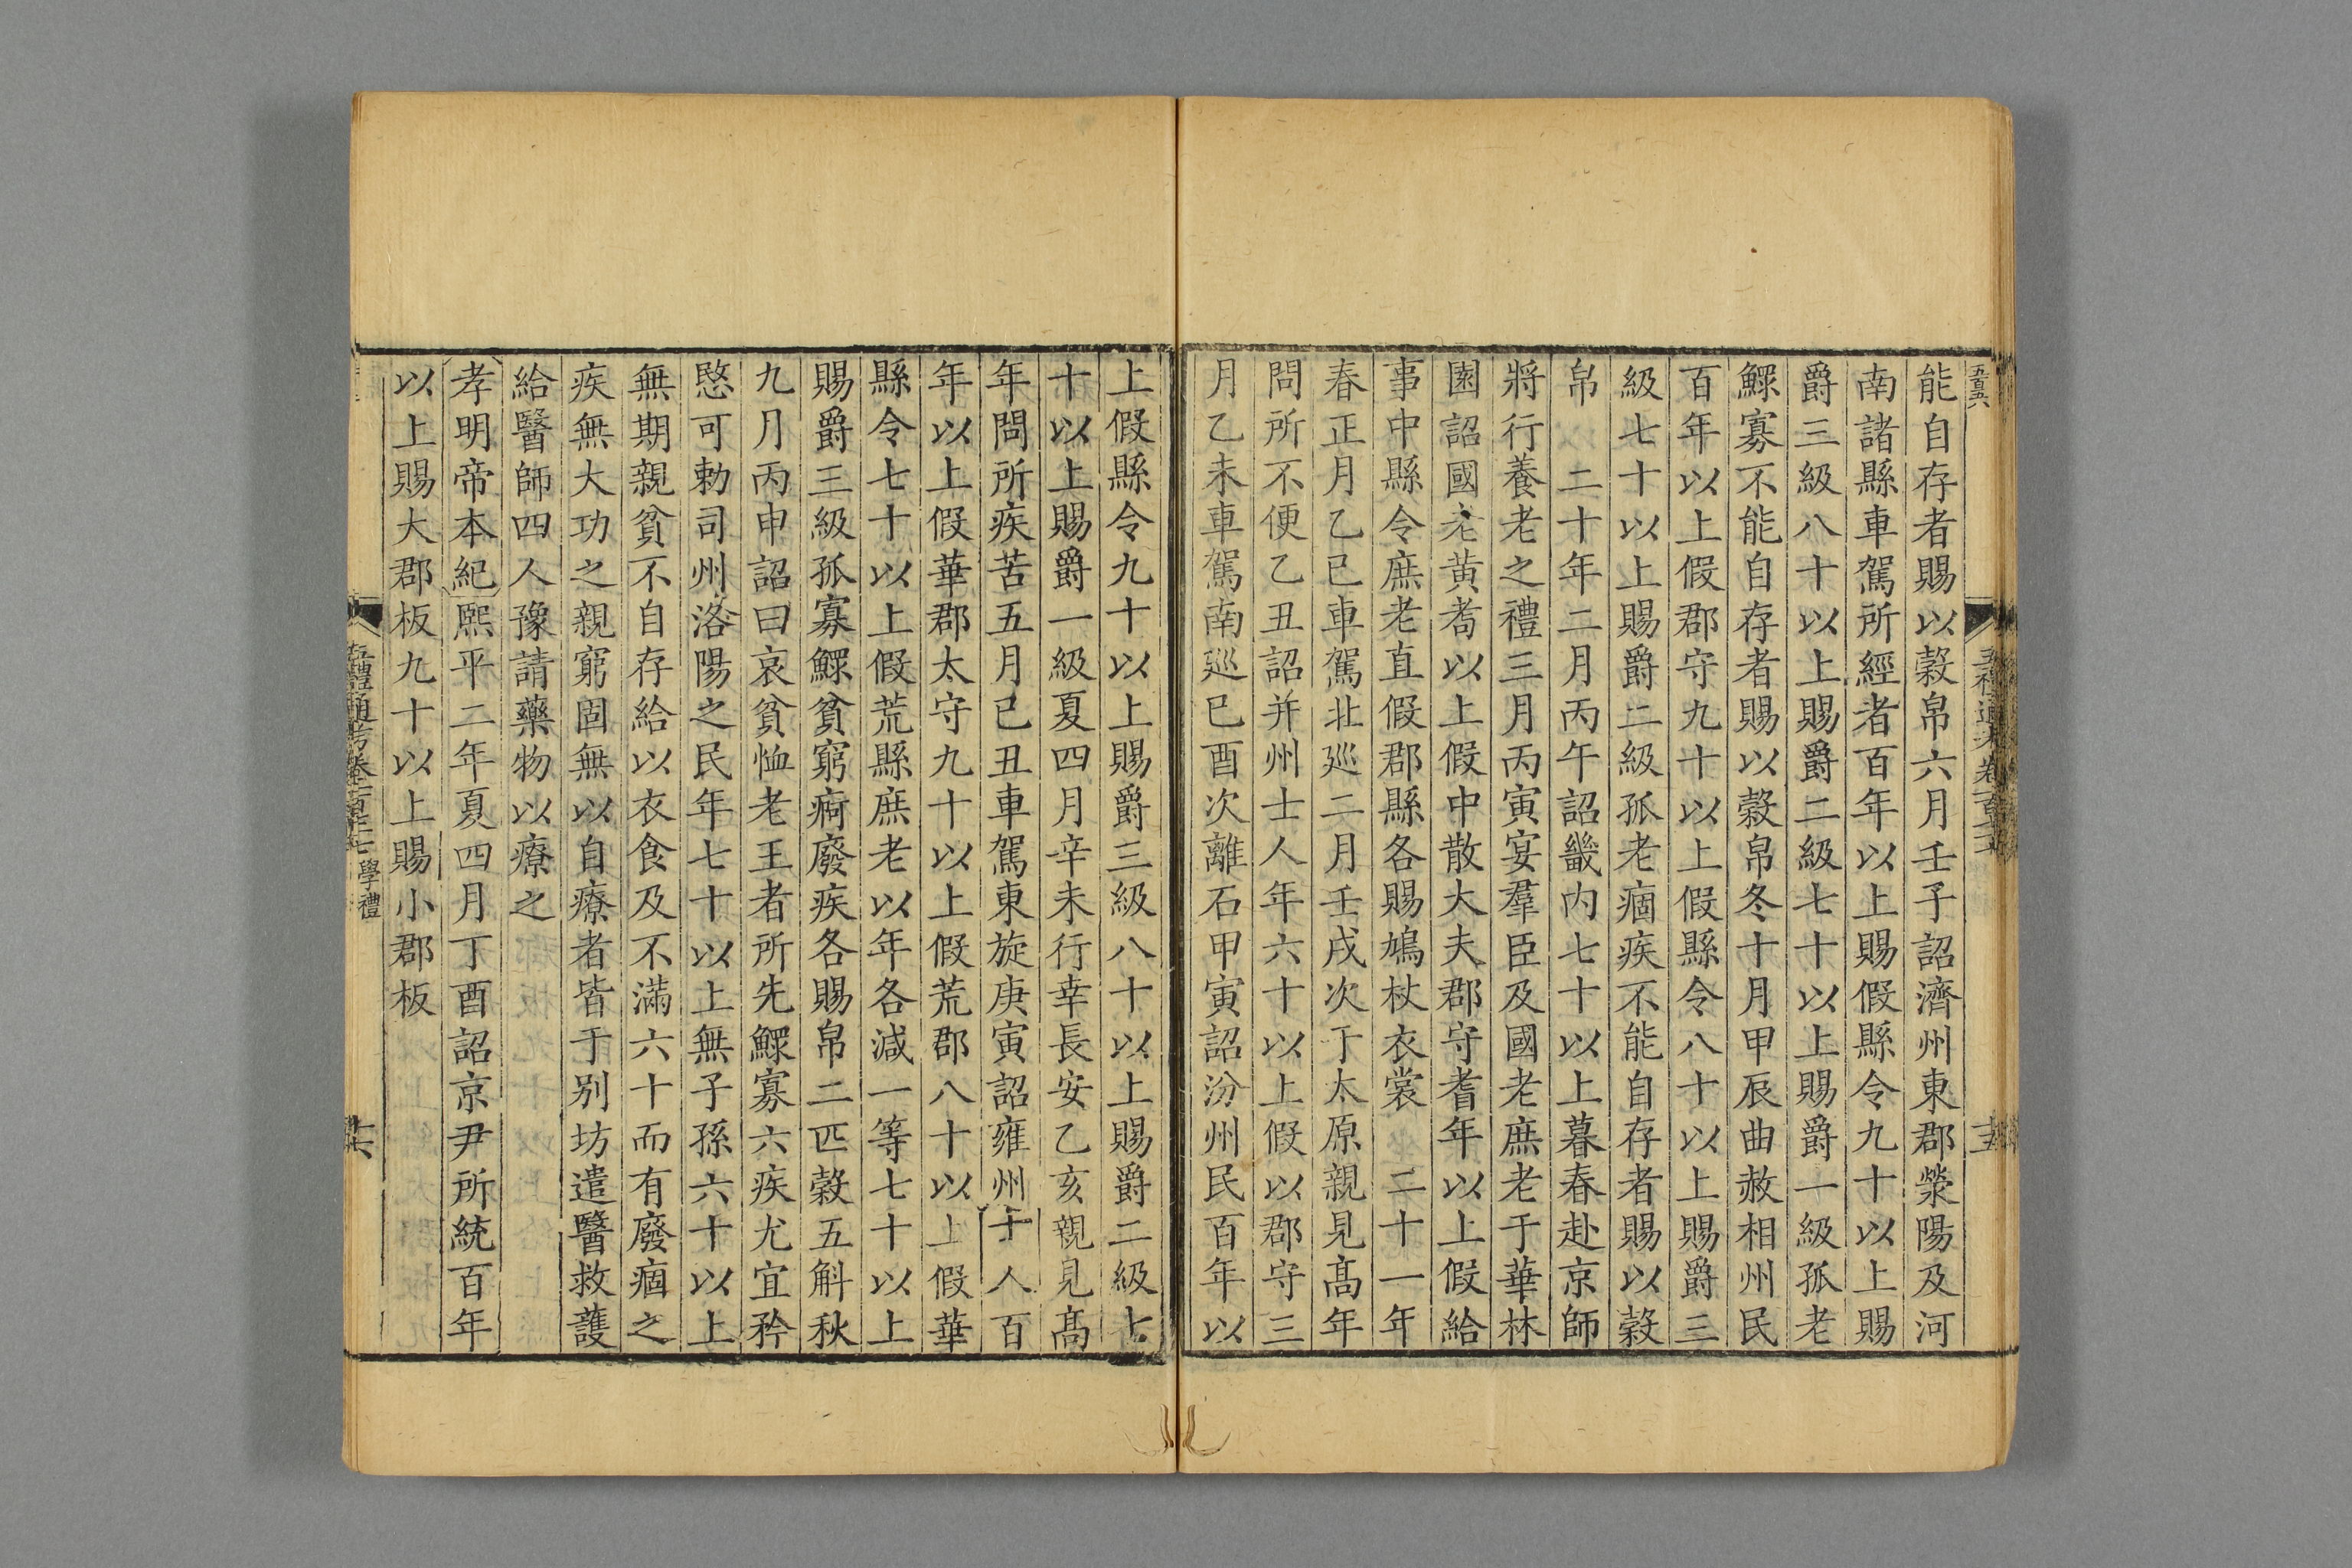 能自存者賜以穀帛六月壬子詔濟州東郡滎陽及河
南諸縣車駕所經者百年以上賜假縣令九十以上賜
爵三級八十以上賜爵二級七十以上賜爵一級孤老
鰥寡不能自存者賜以穀帛冬十月甲辰曲赦相州民
百年以上假郡守九十以上假縣令八十以上賜爵三
級七十以上賜爵二級孤老痼疾不能自存者賜以穀
帛 二十年二月丙午詔畿内七十以上暮春赴京師
將行養老之禮三月丙寅宴羣臣及國老庶老于華林
園詔國老黄耇以上假中散大夫郡守耆年以上假給
事中縣令庶老直假郡縣各賜鳩杖衣裳 二十一年
春正月乙巳車駕北巡二月壬戌次于太原親見髙年
問所不便乙丑詔并州士人年六十以上假以郡守三
月乙未車駕南巡巳酉次離石甲寅詔汾州民百年以
上假縣令九十以上賜爵三級八十以上賜爵二級七
十以上賜爵一級夏四月辛未行幸長安乙亥親見髙
年問所疾苦五月己丑車駕東旋庚寅詔雍州士人百
年以上假華郡太守九十以上假荒郡八十以上假華
縣令七十以上假荒縣庶老以年各減一等七十以上
賜爵三級孤寡鰥貧窮痾廢疾各賜帛二匹穀五斛秋
九月丙申詔曰哀貧恤老王者所先鰥寡六疾尤宜矜
愍可勅司州洛陽之民年七十以上無子孫六十以上
無期親貧不自存給以衣食及不滿六十而有廢痼之
疾無大功之親窮固無以自療者皆于别坊遣醫救護
給醫師四人豫請藥物以療之
孝明帝本紀熙平二年夏四月丁酉詔京尹所統百年
以上賜大郡板九十以上賜小郡板
學禮